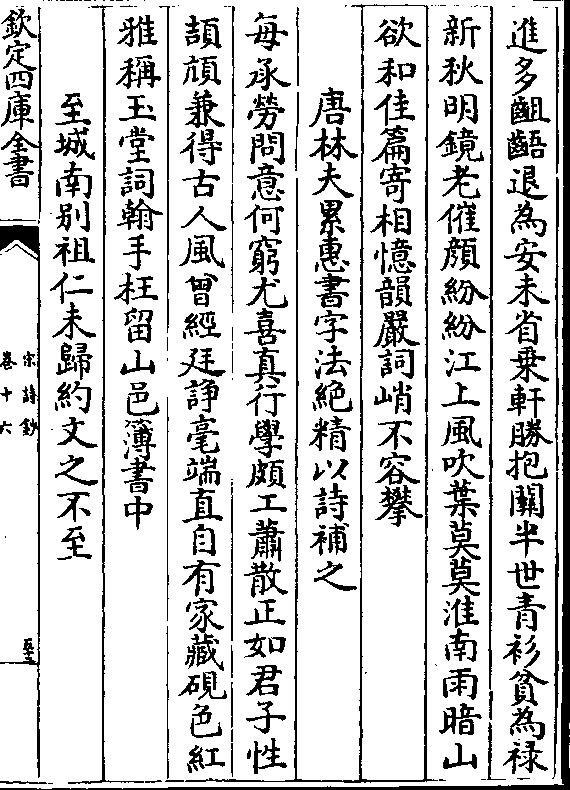 進多齟齬退為安未省乗軒勝抱關半世青衫貧為禄
新秋明鏡老催顔紛紛江上風吹葉莫莫淮南雨暗山
欲和佳篇寄相憶韻嚴詞峭不容攀
唐林夫累惠書字法絶精以詩補之
每承勞問意何窮尤喜真行學頗工蕭散正如君子性
頡頏兼得古人風曾經廷諍毫端直自有家藏硯色紅
雅稱玉堂詞翰手枉留山邑簿書中
至城南别祖仁未歸約文之不至
欽定四庫全書
宋詩鈔
卷十六